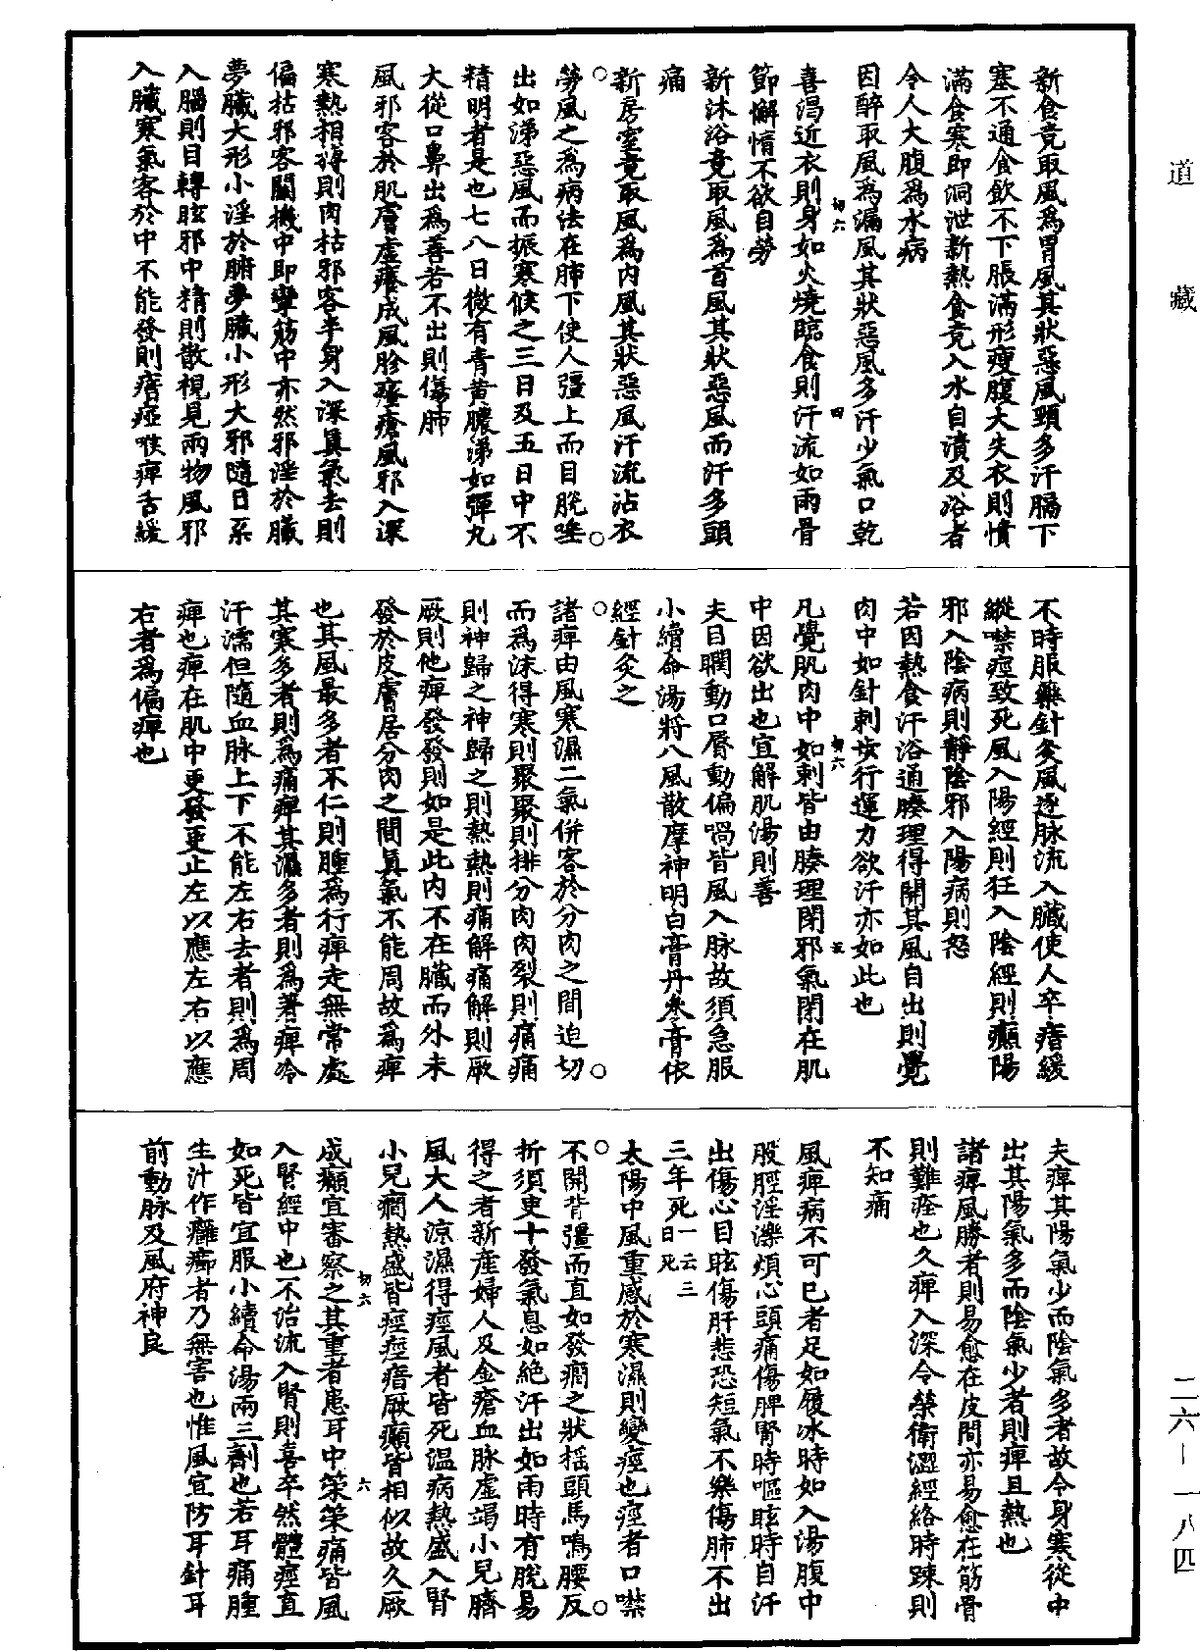 道藏
新食竟取風爲胃風其狀惡風頸多汗膈下
塞不通食飲不下脹滿形瘦腹大失衣則憤
滿食寒即洞泄新熱食竟入水自漬及浴者
令人大腹爲水病
因醉取風爲漏風其狀惡風多汗少氣口乾
喜渴近衣則身如火燒臨食則汗流如雨骨
節懈惰不欲自勞
新沐浴竟取風爲首風其狀惡風而汗多頭
痛
新房室竟取風爲內風其狀惡風汗流沾衣
勞風之爲病法在肺下使人彊上而目脫唾
出如涕惡風而振寒候之三日及五日中不
精明者是也七八日微有青黃膿涕如彈丸
大從口鼻出爲善若不出則傷肺
風邪客於肌膚虛癢成風胗瘙瘡風邪入深
寒熱相搏則肉枯邪客半身入深眞氣去則
偏枯邪客關機中即攣筋中亦然邪淫於臟
夢臟大形小淫於腑夢臟小形大邪隨目系
入腦則目轉眩邪中精則散視見兩物風邪
入臟寒氣客於中不能發則瘖瘂喉痺舌緩
不時服藥針灸風逐脉流入臟使人卒瘖緩
縱噤痙致死風入陽經則狂入陰經則癲陽
邪入陰病則靜陰邪入陽病則怒
若因熱食汗浴通腠理得開其風自出則覺
肉中如針刺步行運力欲汗亦如此也
凡覺肌肉中如刺皆由腠理閉邪氣閉在肌
中因欲出也宜解肌湯則善
夫目瞤動口唇動偏喎皆風入脉故須急服
小續命湯將八風散摩神明白膏丹參膏依
經針灸之
諸痺由風寒濕二氣併客於分肉之間迫切
而爲沫得寒則聚聚則排分肉肉裂則痛痛
則神歸之神歸之則熱熱則痛解痛解則厥
厥則他痺發發則如是此內不在臟而外未
發於皮膚居分肉之間眞氣不能周故爲痺
也其風最多者不仁則腫爲行痺走無常處
其寒多者則爲痛痺其濕多者則爲著痺冷
汗濡但隨血脉上下不能左右去者則爲周
痺也痺在肌中更發更止左以應左右以應
右者爲偏痺也
夫痺其陽氣少而陰氣多者故令身寒從中
出其陽氣多而陰氣少者則痺且熱也
諸痺風勝者則易愈在皮間亦易愈在筋骨
則難痊也久痺入深令榮衛澀經絡時踈則
不知痛
風痺病不可已者足如履冰時如入湯腹中
股脛淫濼煩心頭痛傷脾腎時嘔眩時自汗
出傷心目眩傷肝悲恐短氣不樂傷肺不出
三年死一云三日死
太陽中風重感於寒濕則變痙也痙者口噤
不開背彊而直如發癇之狀搖頭馬鳴腰反
折須臾十發氣息如絕汗出如雨時有脫易
得之者新產婦人及金瘡血脉虛竭小兒臍
風大人涼濕得痙風者皆死温病熱盛入腎
小兒癇熱盛皆痙痙瘖厥癲皆相似故久厥
成癲宜審察之其重者患耳中策策痛皆風
入腎經中也不治流入腎則喜卒然體痙直
如死皆宜服小續命湯兩三劑也若耳痛腫
生汁作癰癤者乃無害也惟風宜防耳針耳
前動脉及風府神良
二六—一八四